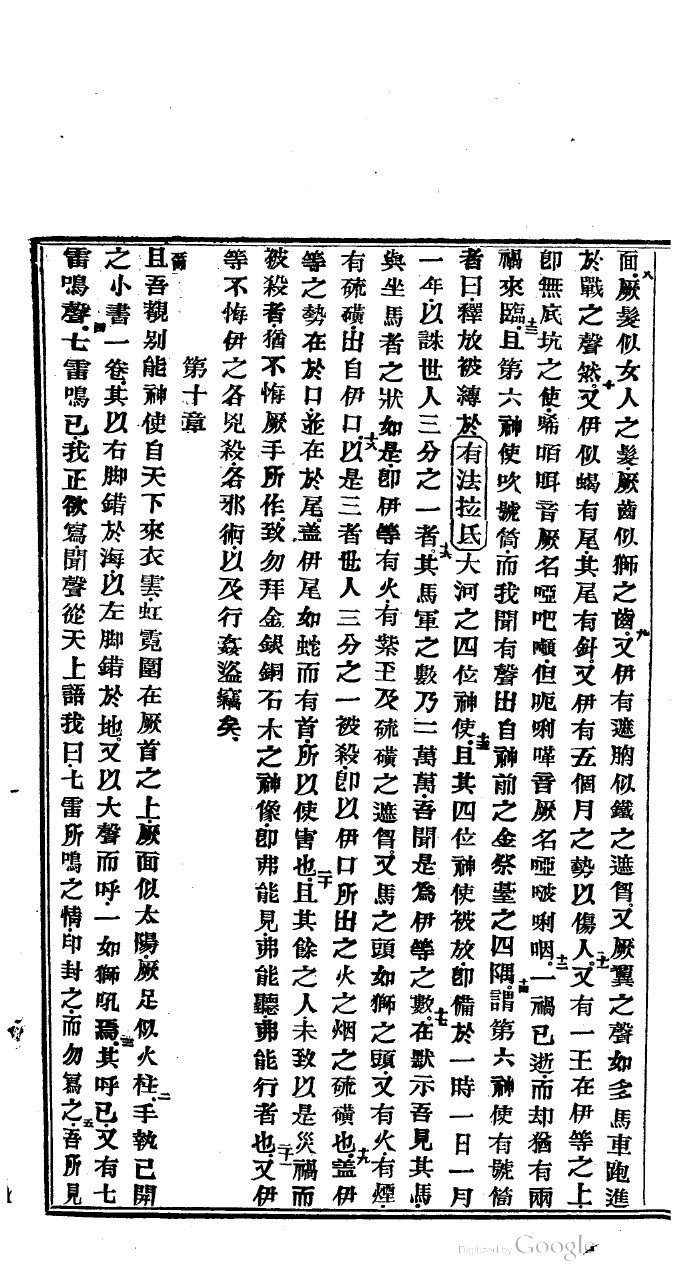 面厥髮似女人之髮厥齒似獅之齒九又伊有遮胸似鐵之遮胷又厥翼之聲如多馬車跑進
於戰之聲然十又伊似蝎有尾其尾有針又伊有五個月之勢以傷人十一又有一王在伊等之上
卽無底坑之使唏音厥名啞吧𠹌但呃唎嗶音厥名啞啵唎咽十二一禍已逝而却猶有兩
禍來臨十三且第六神使吹號筒而我聞有聲出自神前之金祭臺之四隅十四謂第六神使有號筒
者曰釋放被縛於有法拉氐大河之四位神使十五且其四位神使被放卽備於一時一日一月
一年以誅世人三分之一者十六其馬軍之數乃二萬萬吾聞是爲伊等之數十七在默示吾見其馬
與坐馬者之狀如是卽伊等有火有紫玉及硫磺之遮胷又馬之頭如獅之頭又有火有煙
有硫磺出自伊口十八以是三者世人三分之一被殺卽以伊口所出之火之烟之硫磺也十九蓋伊
等之勢在於口並在於尾蓋伊尾如蛇而有首所以使害也二十且其餘之人未致以是災禍而
被殺者猶不悔厥手所作致勿拜金銀銅石木之神像卽弗能見弗能聽弗能行者也二十一又伊
等不悔伊之各兇殺各邪術以及行姦盜竊矣
第十章
且吾觀別能神使自天下來衣雲虹霓圍在厥首之上厥面似太陽厥足似火柱二手執已開
之小書一卷其以右脚錯於海以左脚錯於地又以大聲而呼一如獅吼焉三其呼已又有七
雷鳴聲四七雷鳴已我正欲寫聞聲從天上語我曰七雷所鳴之情印封之而勿寫之五吾所見
Digitized by Google